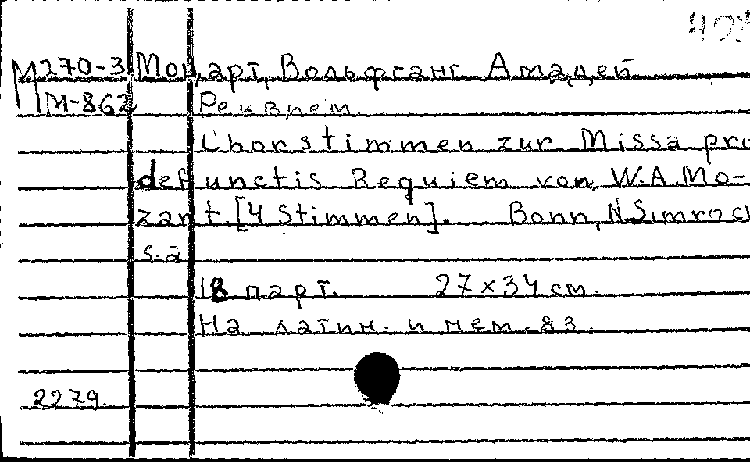 М270-3 Моцарт, Вольфганг Амадей
М-862 Реквием.
Chorstimmen zur Missa pro
defunctis Requiem von W.A.Mo-
zart. [4 Stimmen]. Bonn, N.Simroc
s.a
18 парт. 27×34 см.
На латин. и нем. яз.
2279.